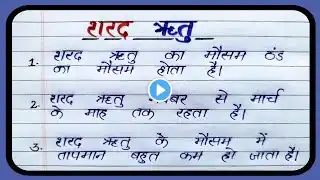 शरद ऋतु
1. शरद ऋतु का मौसम ठंड
का मौसम होता है।
2. शरद ऋतु से मार्च
के माह तक रहता है।
3. शरद ऋतु के मौसम में
तापमान बहुत कम हो जाता है।